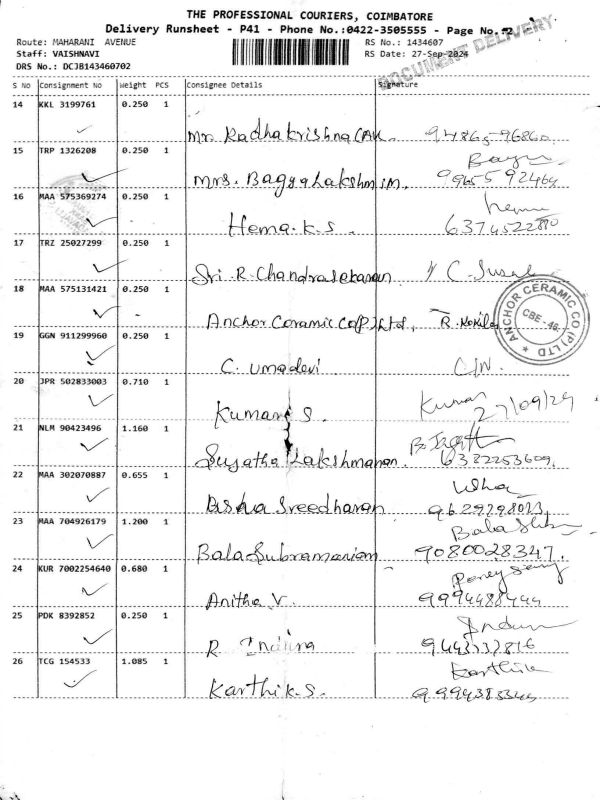 THE PROFESSIONAL COURIERS, COIMBATORE
Delivery Runsheet - P41 - Phone No.:0422-3505555 - Page No.:2
Route: MAHARANI AVENUE
RS No.: 1434607
Staff: VAISHNAVI
RS Date: 27-Sep-2024
DRS No.: DCJB143460702
DOCUMENT DELIVERY
S No Consignment No Weight PCS Consignee Details Signature
14 KKL 3199761 0.250 1
Mr. Radhakrishna 94865-96860
15 TRP 1326208 0.250 1
Mrs. Baggyalakshmi.m.
16 MAA 575369274 0.250 1
Hema.k.s. 6374522880
17 TRZ 25027299 0.250 1
Sri.R.Chandrasekaran
18 MAA 575131421 0.250 1
Anchor Ceramic Co(P)Ltd,
ANCHOR CERAMIC CO (P) LTD
CBE-46
19 GGN 911299960 0.250 1
C. Umadevi
20 JPR 502833003 0.710 1
Kumar S. Kumar
27/09/24
21 NLM 90423496 1.160 1
Sujatha Lakshmanan. 6382253609,
22 MAA 302070887 0.655 1
Sreedharan
23 MAA 704926179 1.200 1
Bala Subramaniam 9080028347.
24 KUR 7002254640 0.680 1
Anitha V. 9994488444
25 PDK 8392852 0.250 1
R
26 TCG 154533 1.085 1
Karthik.S. Karthik